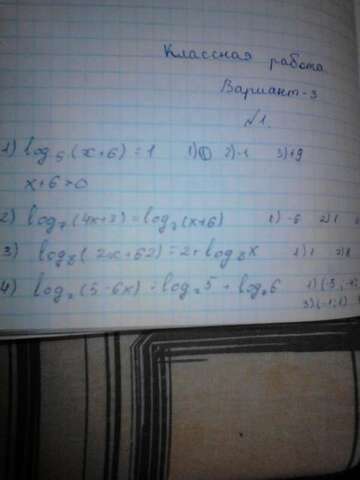 Классная работа
Вариант-3
№1.
1) log₅(x+6)=1 1) 2)-1 3)+9
x+6>0
2) log₇(4x+3)=log₇(x+6) 1) -6 2) 1
3) log₈(2x+62)=2+log₈x 1) 1 2)
4) log₂(5-6x)=log₂5+log₂6